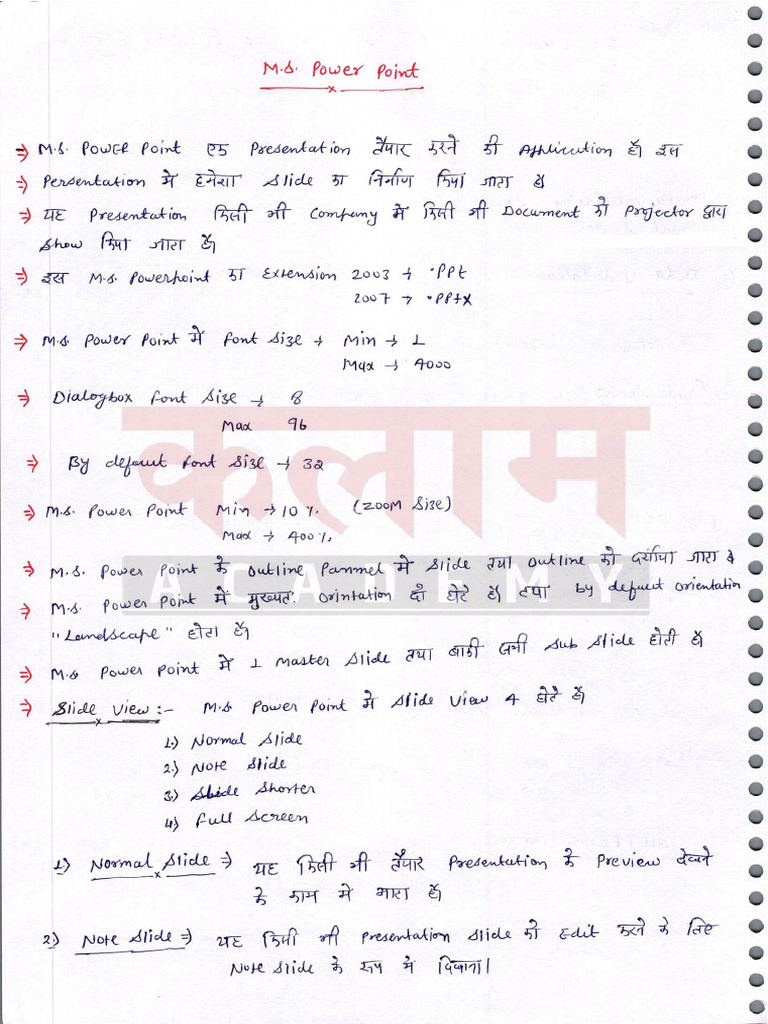 M.S. Power Point
⇒ M.S. POWER Point एक Presentation तैयार करने की Application है। इस
⇒ Persentation में हमेशा Slide का निर्माण किया जाता है
⇒ यह Presentation किसी भी Company में किसी भी Document को Projector द्वारा
Show किया जाता है।
⇒ इस M.S. Powerpoint का Extension 2003 → .PPt
2007 → .PPtx
⇒ M.S. Power Point में font Size → Min → 1
Max → 4000
⇒ Dialogbox font Size → 8
Max 96
⇒ By defaut font Size → 32
कलाम
⇒ M.S. Power Point Min → 10%. (ZOOM Size)
Max → 400%.
⇒ M.S. Power Point के Outline Pannel में Slide तथा Outline को दर्शाया जाता है
ACADEMY
⇒ M.S. Power Point में मुख्यतः Orintation दो होते है। तथा by defaut Orientation
"Landscape" होता है।
⇒ M.S Power Point में 1 Master Slide तथा बाकी सभी Sub Slide होती है।
⇒ Slide View :- M.S Power Point में Slide View 4 होते है।
1.) Normal Slide
2.) Note Slide
3.) Slide Shorter
4.) Full Screen
1.) Normal Slide ⇒ यह किसी भी तैयार Presentation के Preview देखने
के काम में आता है।
2.) Note Slide ⇒ यह किसी भी Presentation Slide को Edit करने के लिए
Note Slide के रूप में दिखाना।